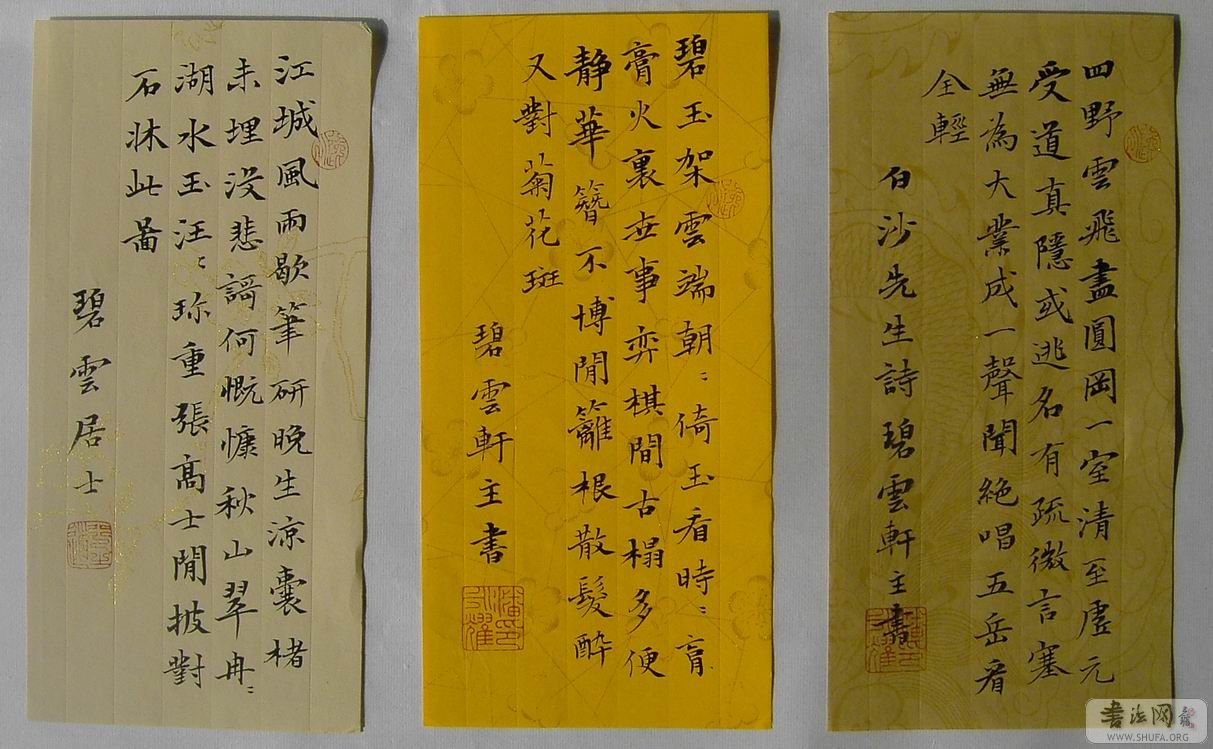 江城風雨歇筆研晚生涼囊楮
未埋没悲謌何慨慷秋山翠冉〻
湖水玉汪〻珎重張髙士閒披對
石牀此啚
碧雲居士
碧玉架雲端朝〻倚玉看時〻肓
膏火裏世事弈棋間古榻多便
静華簪不博閒籬根散髮醉
又對菊花斑
碧雲軒主書
四野雲飛盡圓岡一室清至虛元
受道真隱或逃名有疏微言塞
無為大業成一聲聞絶唱五岳看
全輕
白沙先生詩碧雲軒主書
书法网
WWW.SHUFA.ORG